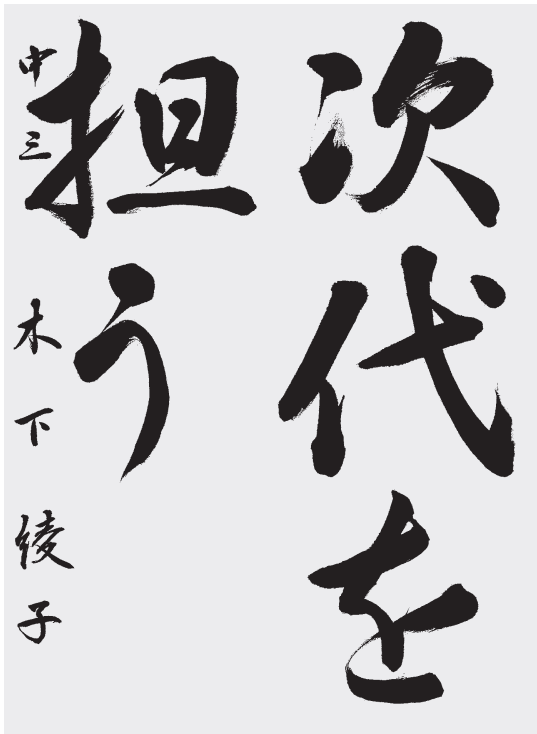 次代を
担う
中三 木下綾子